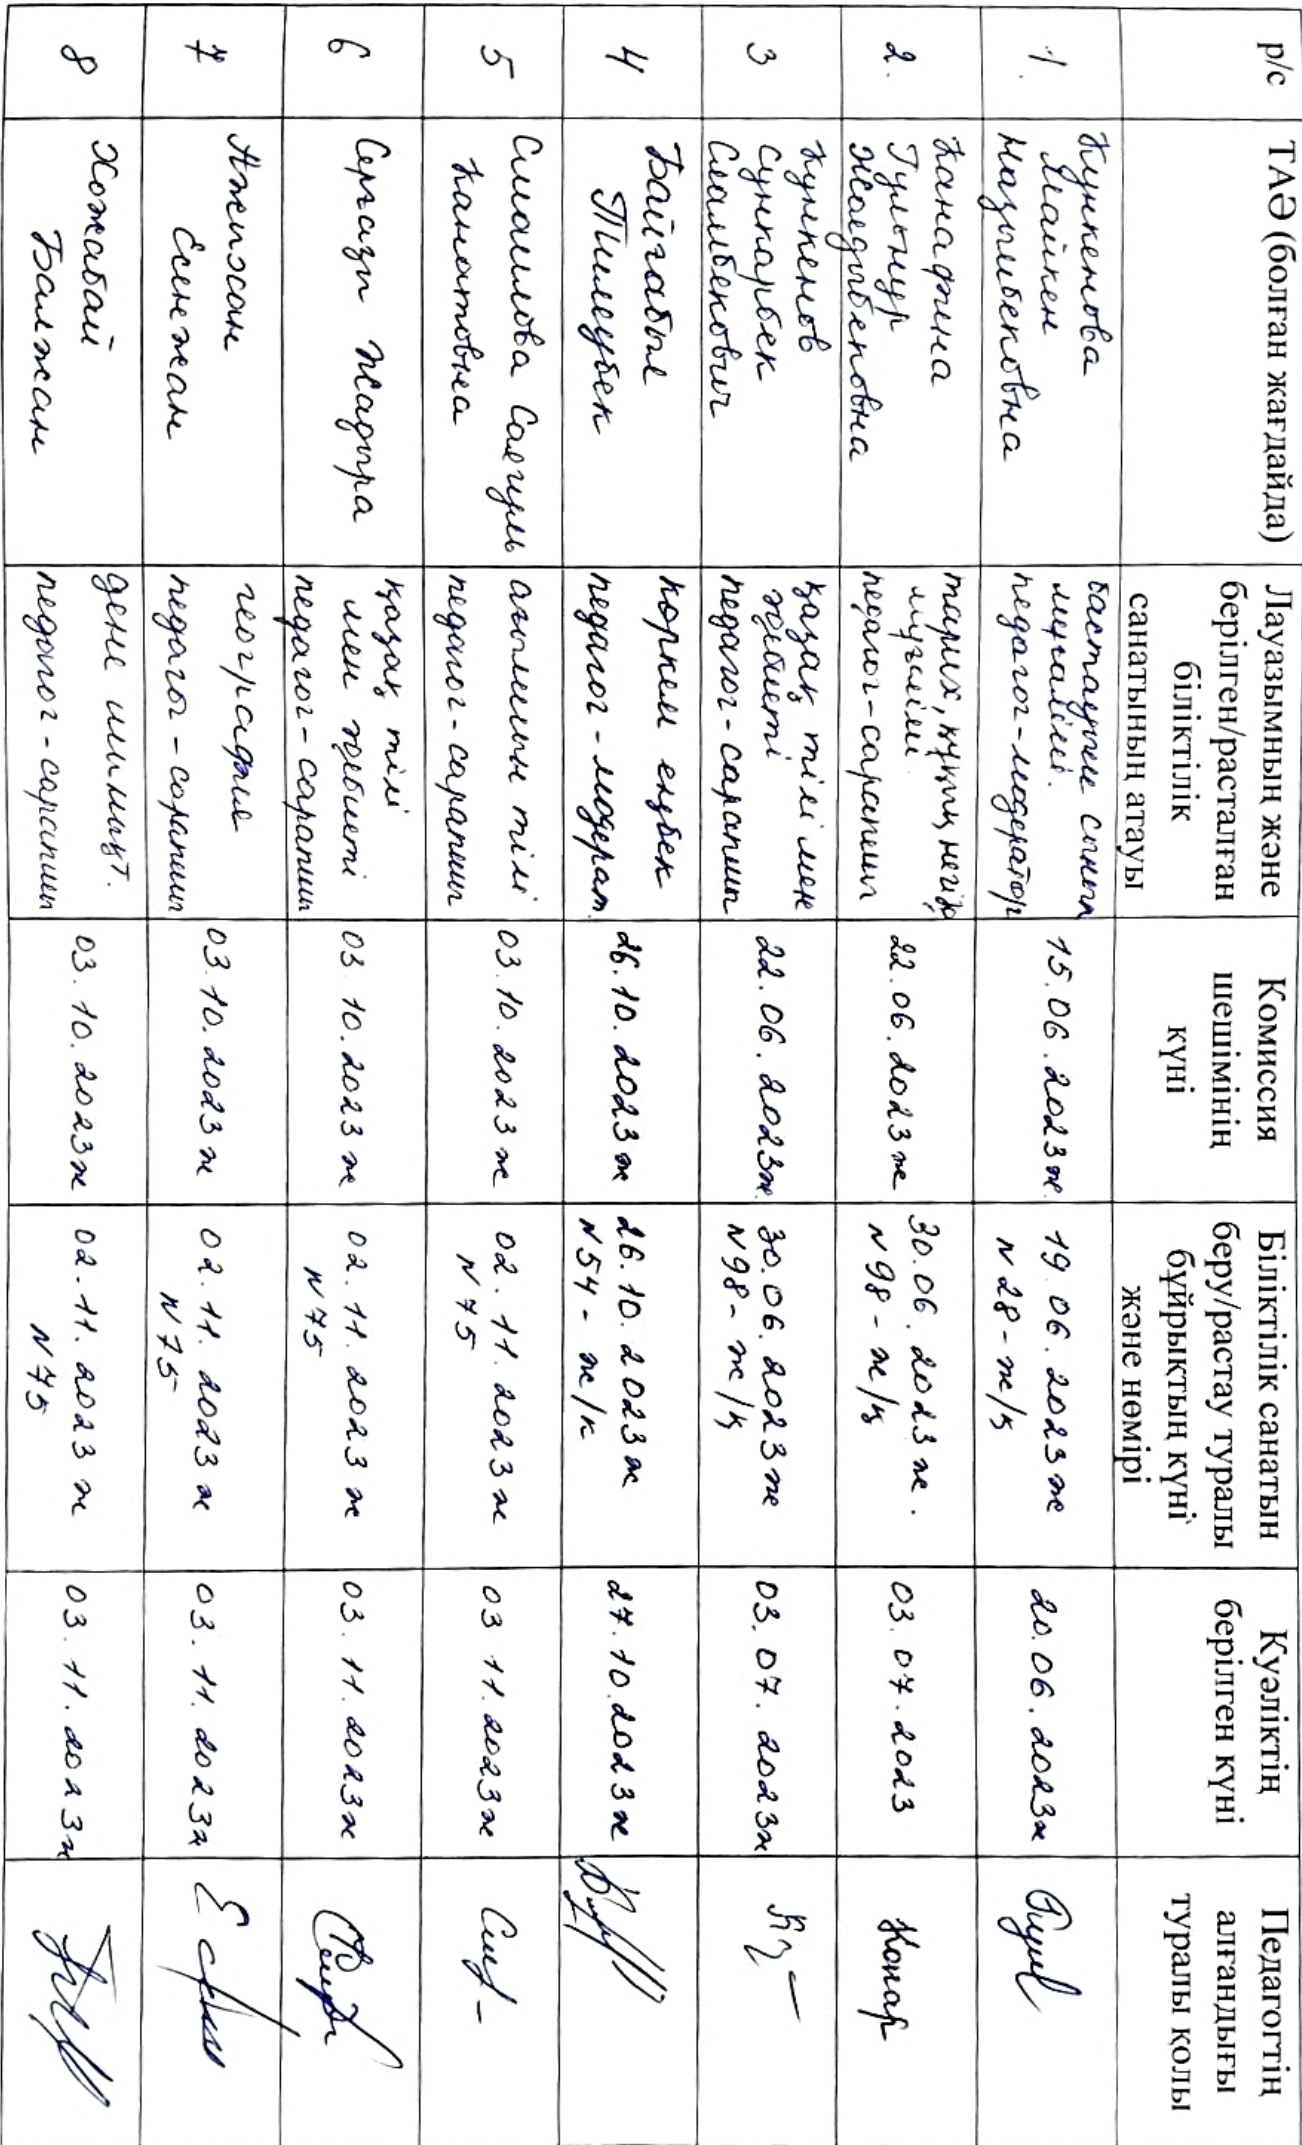 р/с
ТАӘ (болған жағдайда)
Лауазымның және
берілген/расталған
біліктілік
санатының атауы
Комиссия
шешімінің
күні
Біліктілік санатын
беру/растау туралы
бұйрықтың күні
және нөмірі
Куәліктің
берілген күні
Педагогтің
алғандығы
туралы қолы
1.
Кункенова
Майкен
Назымбековна
бастауыш сынып
мұғалімі.
педагог-модератор
15.06.2023ж.
19.06.2023ж
N28-ж/қ
20.06.2023ж
2.
Канафина
Гульнур
Жолдыбековна
тарих, құқық негізі
мұғалімі
педагог-сарапшы
22.06.2023ж
30.06.2023ж.
N98-ж/қ
03.07.2023
Конаf
3
Кункенов
Сункарбек
Сламбекович
қазақ тілі мен
әдебиеті
педагог-сарапшы
22.06.2023ж.
30.06.2023ж
N98-ж/қ
03.07.2023ж
4
Байгабыл
Тилеубек
көркем еңбек
педагог-модерат.
26.10.2023ж
26.10.2023ж
N54-ж/к
27.10.2023ж
5
Смаилова Саягуль
Канатовна
ағылшын тілі
педагог-сарапшы
03.10.2023ж
02.11.2023ж
N75
03 11.2023ж
6
Сергазы Жадыра
қазақ тілі
мен әдебиеті
педагог-сарапшы
03.10.2023ж
02.11.2023ж
N75
03.11.2023ж
7
Ажепхан
Есенжан
география
педагог-сарапшы
03.10.2023ж
02.11.2023ж
N75
03.11.2023ж
8
Хожабай
Балжан
дене шынықт.
педагог-сарапшы
03.10.2023ж
02.11.2023ж
N75
03.11.2023ж